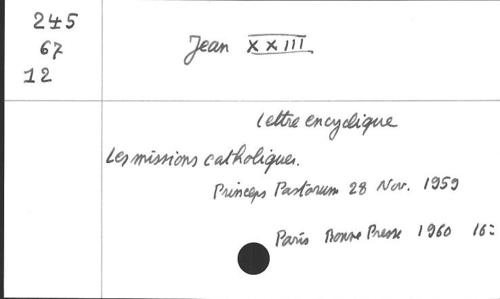 245
67
12
Jean XXIII
Lettre encyclique
Les missions catholiques.
Princeps Pastorum 28 Nov. 1959
Paris Bonne Presse 1960 16=